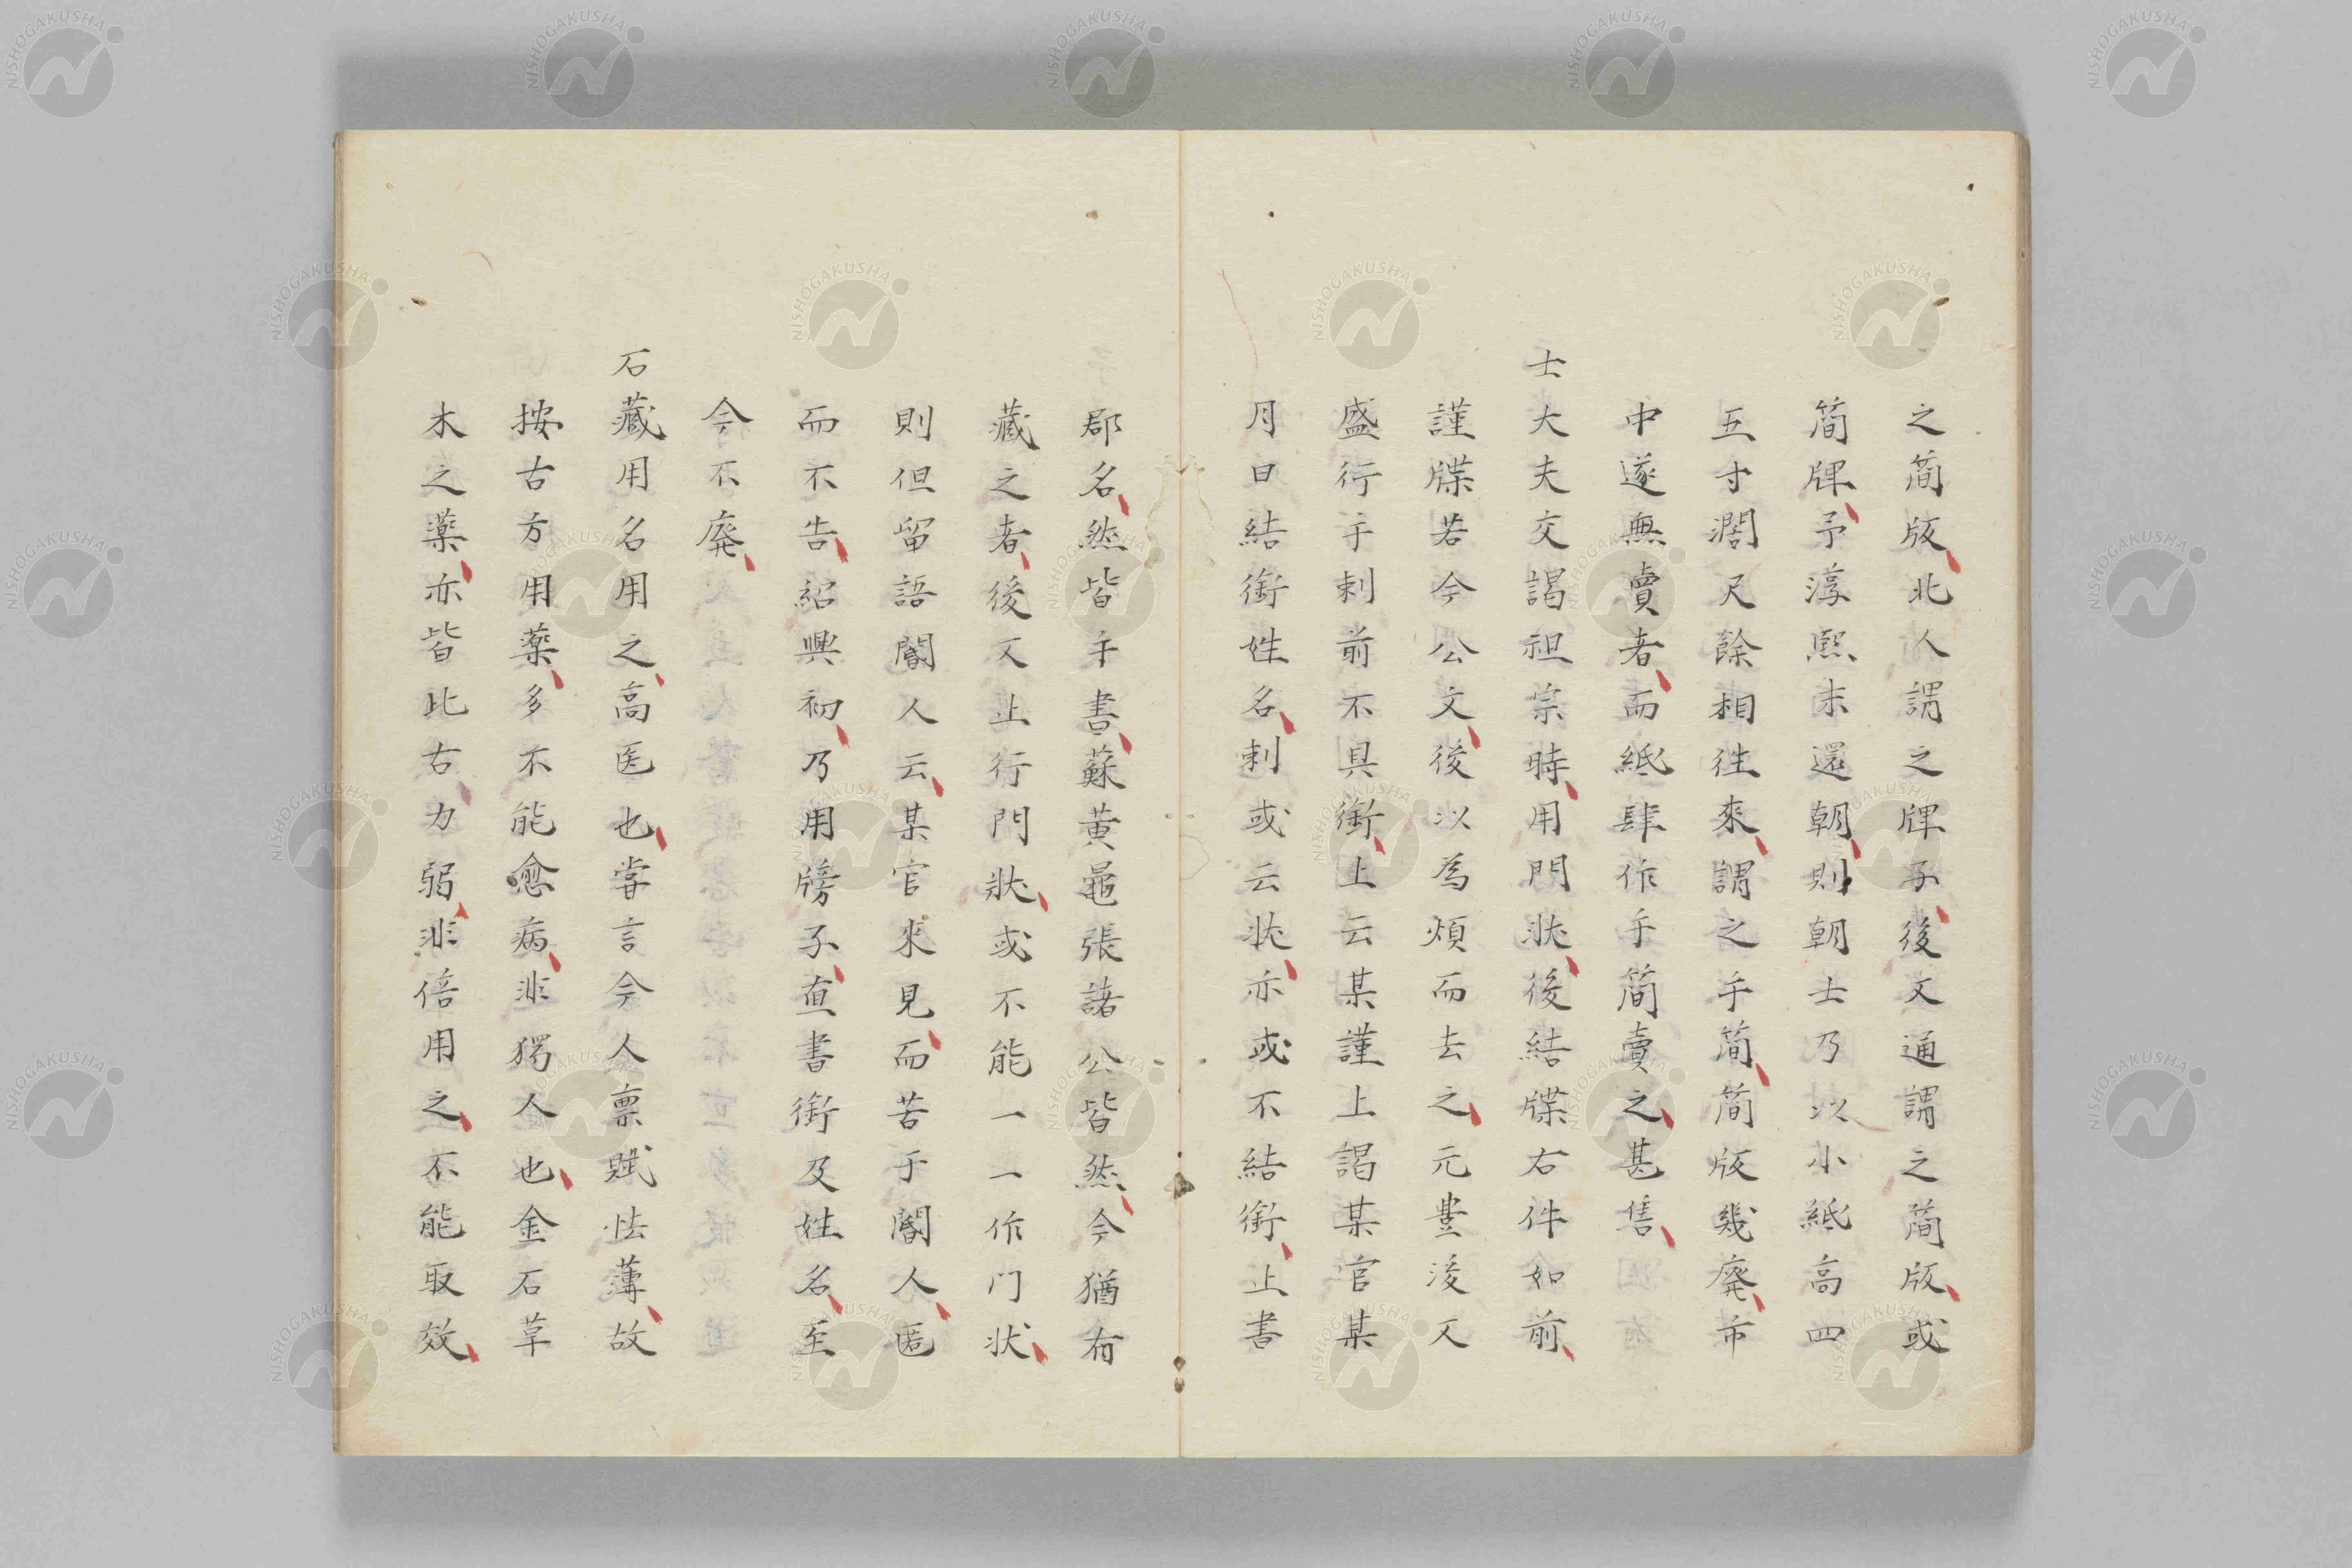 之簡版北人謂之牌子後文通謂之簡版或
簡牌予淳熙末還朝則朝士乃以小紙高四
五寸濶尺餘相往來謂之手簡簡版幾廃市
中遂無賣者而紙肆作手簡賣之甚售
士大夫交謁祖宗時用門狀後結牒右件如前
謹牒若今公文後以為煩而去之元豊後又
盛行手刺前不具銜上云某謹上謁某官某
月日結銜姓名刺或云狀亦或不結銜止書
郡名然皆手書蘇黄鼂張諸公皆然今猶有
藏之者後又止行門狀或不能一一作门状
則但留語閽人云某官來見而苦于閽人匿
而不告紹興初乃用牓子直書銜及姓名至
今不廃
石藏用名用之高医也嘗言今人禀賦怯薄故
按古方用薬多不能愈病非獨人也金石草
木之薬亦皆比古力弱非倍用之不能取效
NISHOGAKUSHA